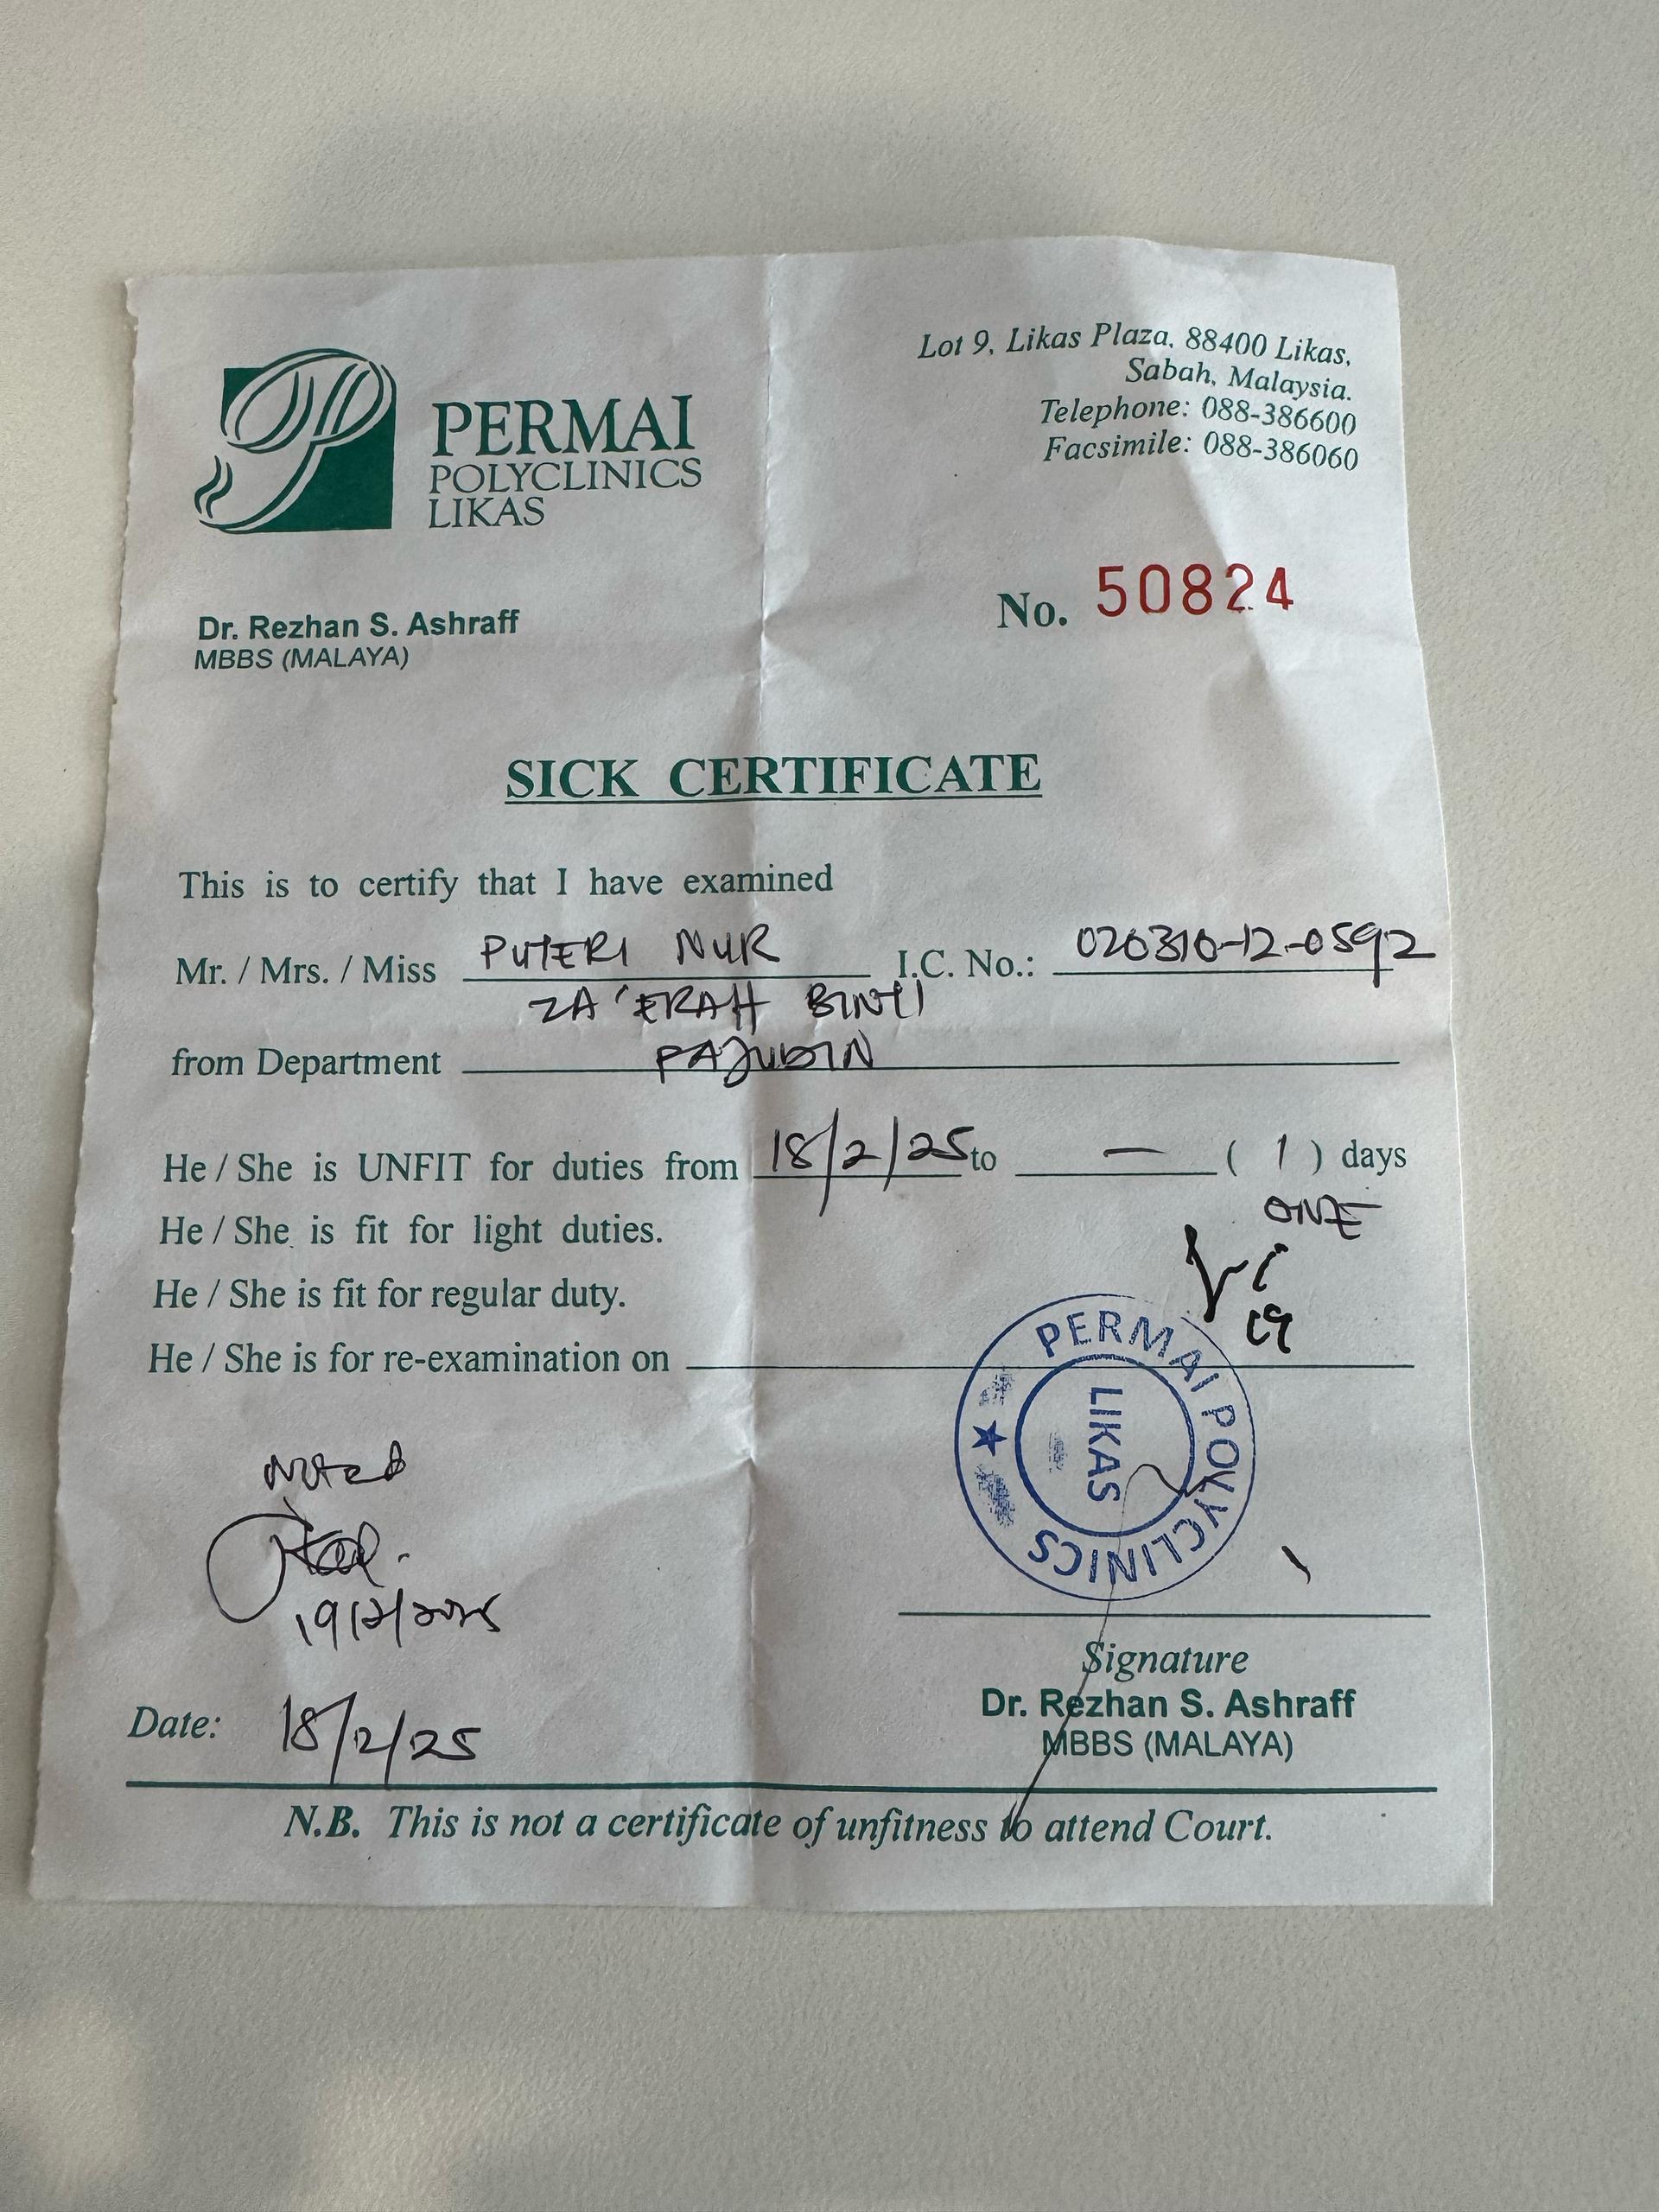 PERMAI
POLYCLINICS
LIKAS
Lot 9, Likas Plaza, 88400 Likas,
Sabah, Malaysia.
Telephone: 088-386600
Facsimile: 088-386060
Dr. Rezhan S. Ashraff
MBBS (MALAYA)
No. 50824
SICK CERTIFICATE
This is to certify that I have examined
Mr. / Mrs. / Miss PUTERI NUR I.C. No.: 020310-12-0592
ZA'ERAH BINTI
from Department PAJUDIN
He / She is UNFIT for duties from 18/2/25 to — ( 1 ) days
ONE
He / She is fit for light duties.
He / She is fit for regular duty.
He / She is for re-examination on
PERMAI POLYCLINICS
LIKAS
Noted
19/2/2025
Signature
Dr. Rezhan S. Ashraff
MBBS (MALAYA)
Date: 18/2/25
N.B. This is not a certificate of unfitness to attend Court.